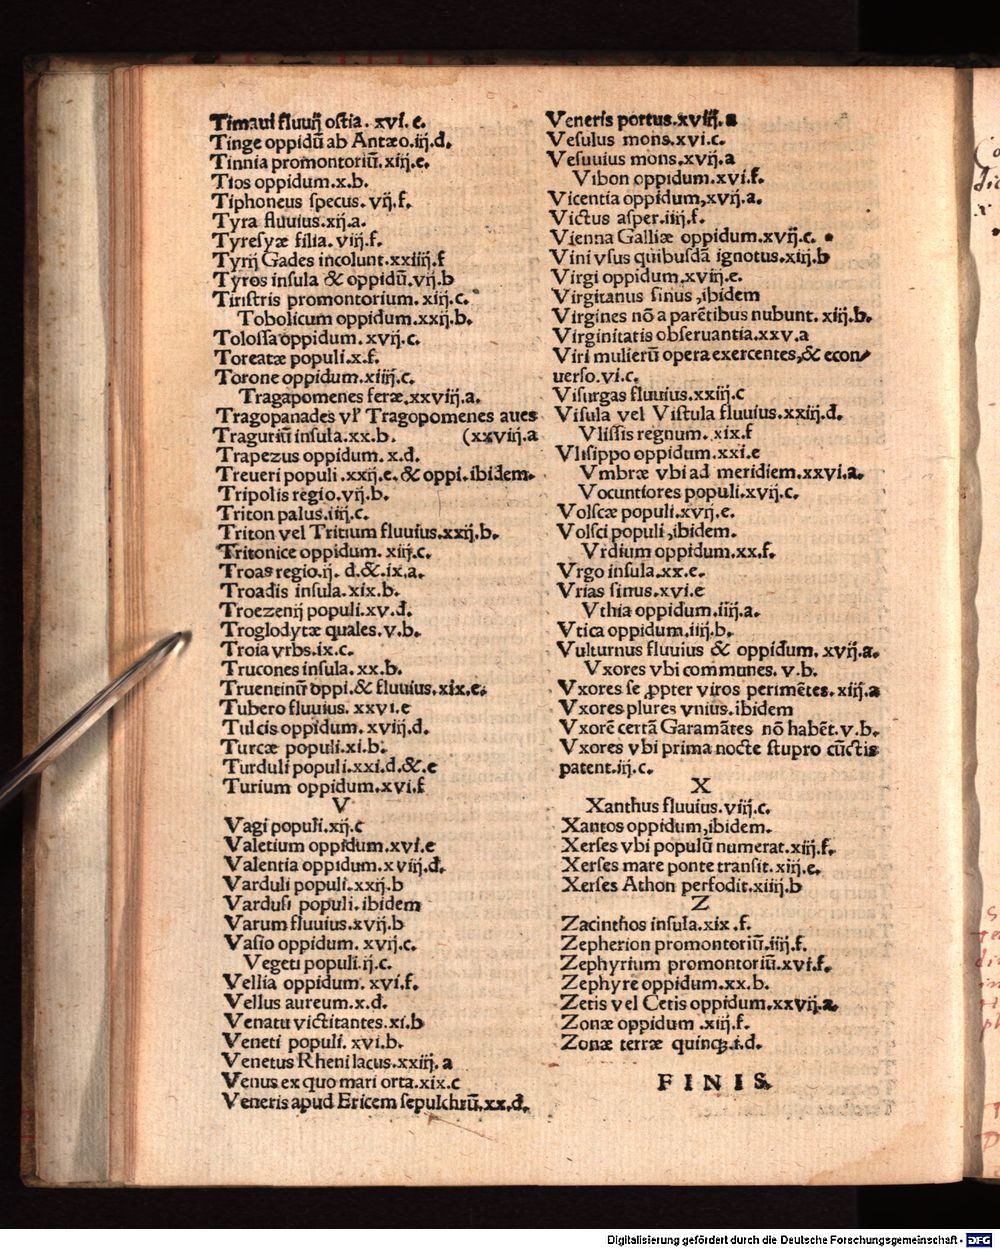 Timaui fluuij ostia. xvi. e.
Tinge oppidū ab Antæo.iij.d.
Tinnia promontoriū.xiij.e.
Tios oppidum.x.b.
Tiphoneus specus. vij.f.
Tyra fluuius.xij.a.
Tyresyæ filia. viij.f.
Tyrij Gades incolunt.xxiiij.f
Tyros insula & oppidū.vij.b
Tiristris promontorium. xiij.c.
Tobolicum oppidum.xxij.b.
Tolossa oppidum. xvij.c.
Toreatæ populi.x.f.
Torone oppidum.xiiij.c.
Tragapomenes feræ.xxviij.a.
Tragopanades vł Tragopomenes aues
Traguriū insula.xx.b. (xxviij.a
Trapezus oppidum. x.d.
Treueri populi .xxij.e. & oppi. ibidem.
Tripolis regio. vij.b.
Triton palus.iiij.c.
Triton vel Tritium fluuius.xxij.b.
Tritonice oppidum. xiij.c.
Troas regio.ij. d.&.ix.a.
Troadis insula.xix.b.
Troezenij populi.xv.d.
Troglodytæ quales. v.b.
Troia vrbs.ix.c.
Trucones insula. xx.b.
Truentinū oppi.& fluuius.xix.e.
Tubero fluuius. xxvi.e
Tulcis oppidum. xviij.d.
Turcæ populi.xi.b.
Turduli populi.xxi.d.&.e
Turium oppidum.xvi.f
V
Vagi populi.xij.c
Valetium oppidum.xvi.e
Valentia oppidum.xviij.d.
Varduli populi.xxij.b
Vardusi populi. ibidem
Varum fluuius.xvij.b
Vasio oppidum. xvij.c.
Vegeti populi.ij.c.
Vellia oppidum. xvi.f.
Vellus aureum.x.d.
Venatu victitantes.xi.b
Veneti populi. xvi.b.
Venetus Rheni lacus.xxiij. a
Venus ex quo mari orta.xix.c
Veneris apud Ericem sepulchrū.xx.d.
Veneris portus.xviij. a
Vesulus mons.xvi.c.
Vesuuius mons.xvij.a
Vibon oppidum.xvi.f.
Vicentia oppidum,xvij.a.
Victus asper.iiij.f.
Vienna Galliæ oppidum.xvij.c.
Vini vsus quibusdā ignotus.xiij.b
Virgi oppidum.xviij.e.
Virgitanus sinus ,ibidem
Virgines nō a parētibus nubunt. xiij.b.
Virginitatis obseruantia.xxv.a
Viri mulierū opera exercentes,& econ/
uerso.vi.c.
Visurgas fluuius.xxiij.c
Visula vel Vistula fluuius.xxiij.d.
Vlissis regnum. xix.f
Vlisippo oppidum.xxi.e
Vmbræ vbi ad meridiem.xxvi.a.
Vocuntiores populi.xvij.c.
Volscæ populi.xvij.e.
Volsci populi ,ibidem.
Vrdium oppidum.xx.f.
Vrgo insula.xx.e.
Vrias sinus.xvi.e
Vthia oppidum.iiij.a.
Vtica oppidum.iiij.b.
Vulturnus fluuius & oppidum. xvij.a.
Vxores vbi communes. v.b.
Vxores se ꝓpter viros perimētes. xiij.a
Vxores plures vnius. ibidem
Vxorē certā Garamātes nō habēt. v.b.
Vxores vbi prima nocte stupro cūctis
patent.iij.c.
X
Xanthus fluuius. viij.c.
Xantos oppidum,ibidem.
Xerses vbi populū numerat.xiij.f.
Xerses mare ponte transit. xiij.e.
Xerses Athon perfodit.xiiij.b
Z
Zacinthos insula.xix .f.
Zepherion promontoriū.iiij.f.
Zephyrium promontoriū.xvi.f.
Zephyre oppidum.xx.b.
Zetis vel Cetis oppidum.xxvij.a.
Zonæ oppidum .xiij.f.
Zonæ terræ quinqꝫ.i.d.
FINIS.
Digitalisierung gefördert durch die Deutsche Forschungsgemeinschaft - DFG